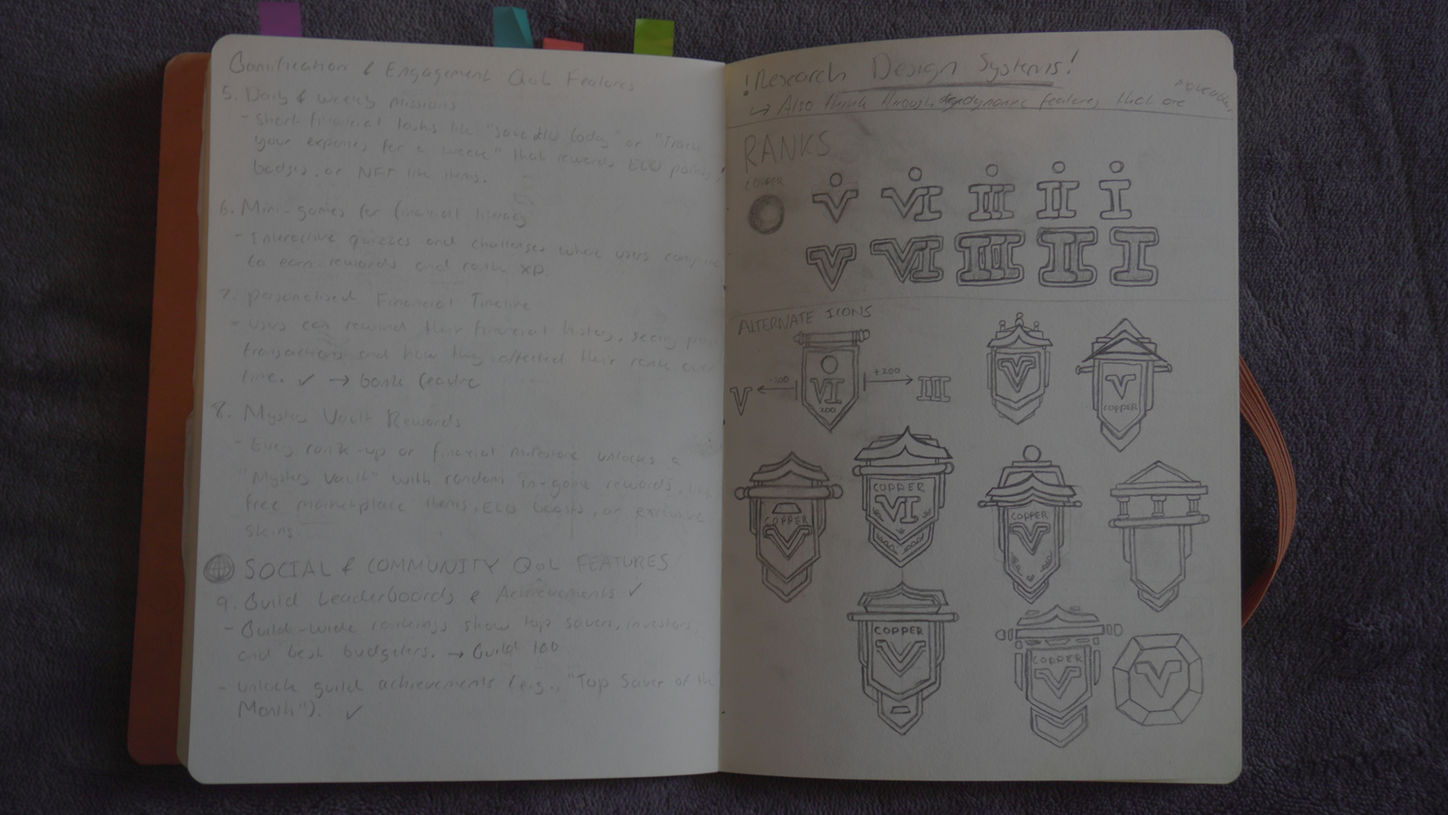 Gamification & Engagement QoL Features
5. Daily & weekly missions
- Short financial tasks like "Save today" or "Track
your expenses for a week" that rewards ELO points,
badges, or NFT like items.
6. Mini-games for financial literacy
- Interactive quizzes and challenges where users compete
to earn rewards and rank xp.
7. personalised Financial Timeline
- users can rewind their financial history, seeing past
transactions and how they affected their rank over
time. ✓ → bank feature
8. Mystery Vault Rewards
- Every rank-up or financial milestone unlocks a
"Mystery Vault" with random in-game rewards, like
free marketplace items, ELO boosts, or exclusive
skins.
SOCIAL & COMMUNITY QoL FEATURES
9. Guild Leaderboards & Achievements ✓
- Guild-wide rankings show top savers, investors,
and best budgeters. → Guild 100
- unlock guild achievements (e.g., "Top Saver of the
Month"). ✓
!Research Design Systems!
↳ Also think through features that are
RANKS
COPPER
V VI III II I
V VI III II I
ALTERNATE ICONS
V ← -200 VI 200 +200 → III
V
V COPPER
COPPER V
COPPER VI
COPPER V
COPPER V
COPPER V
V